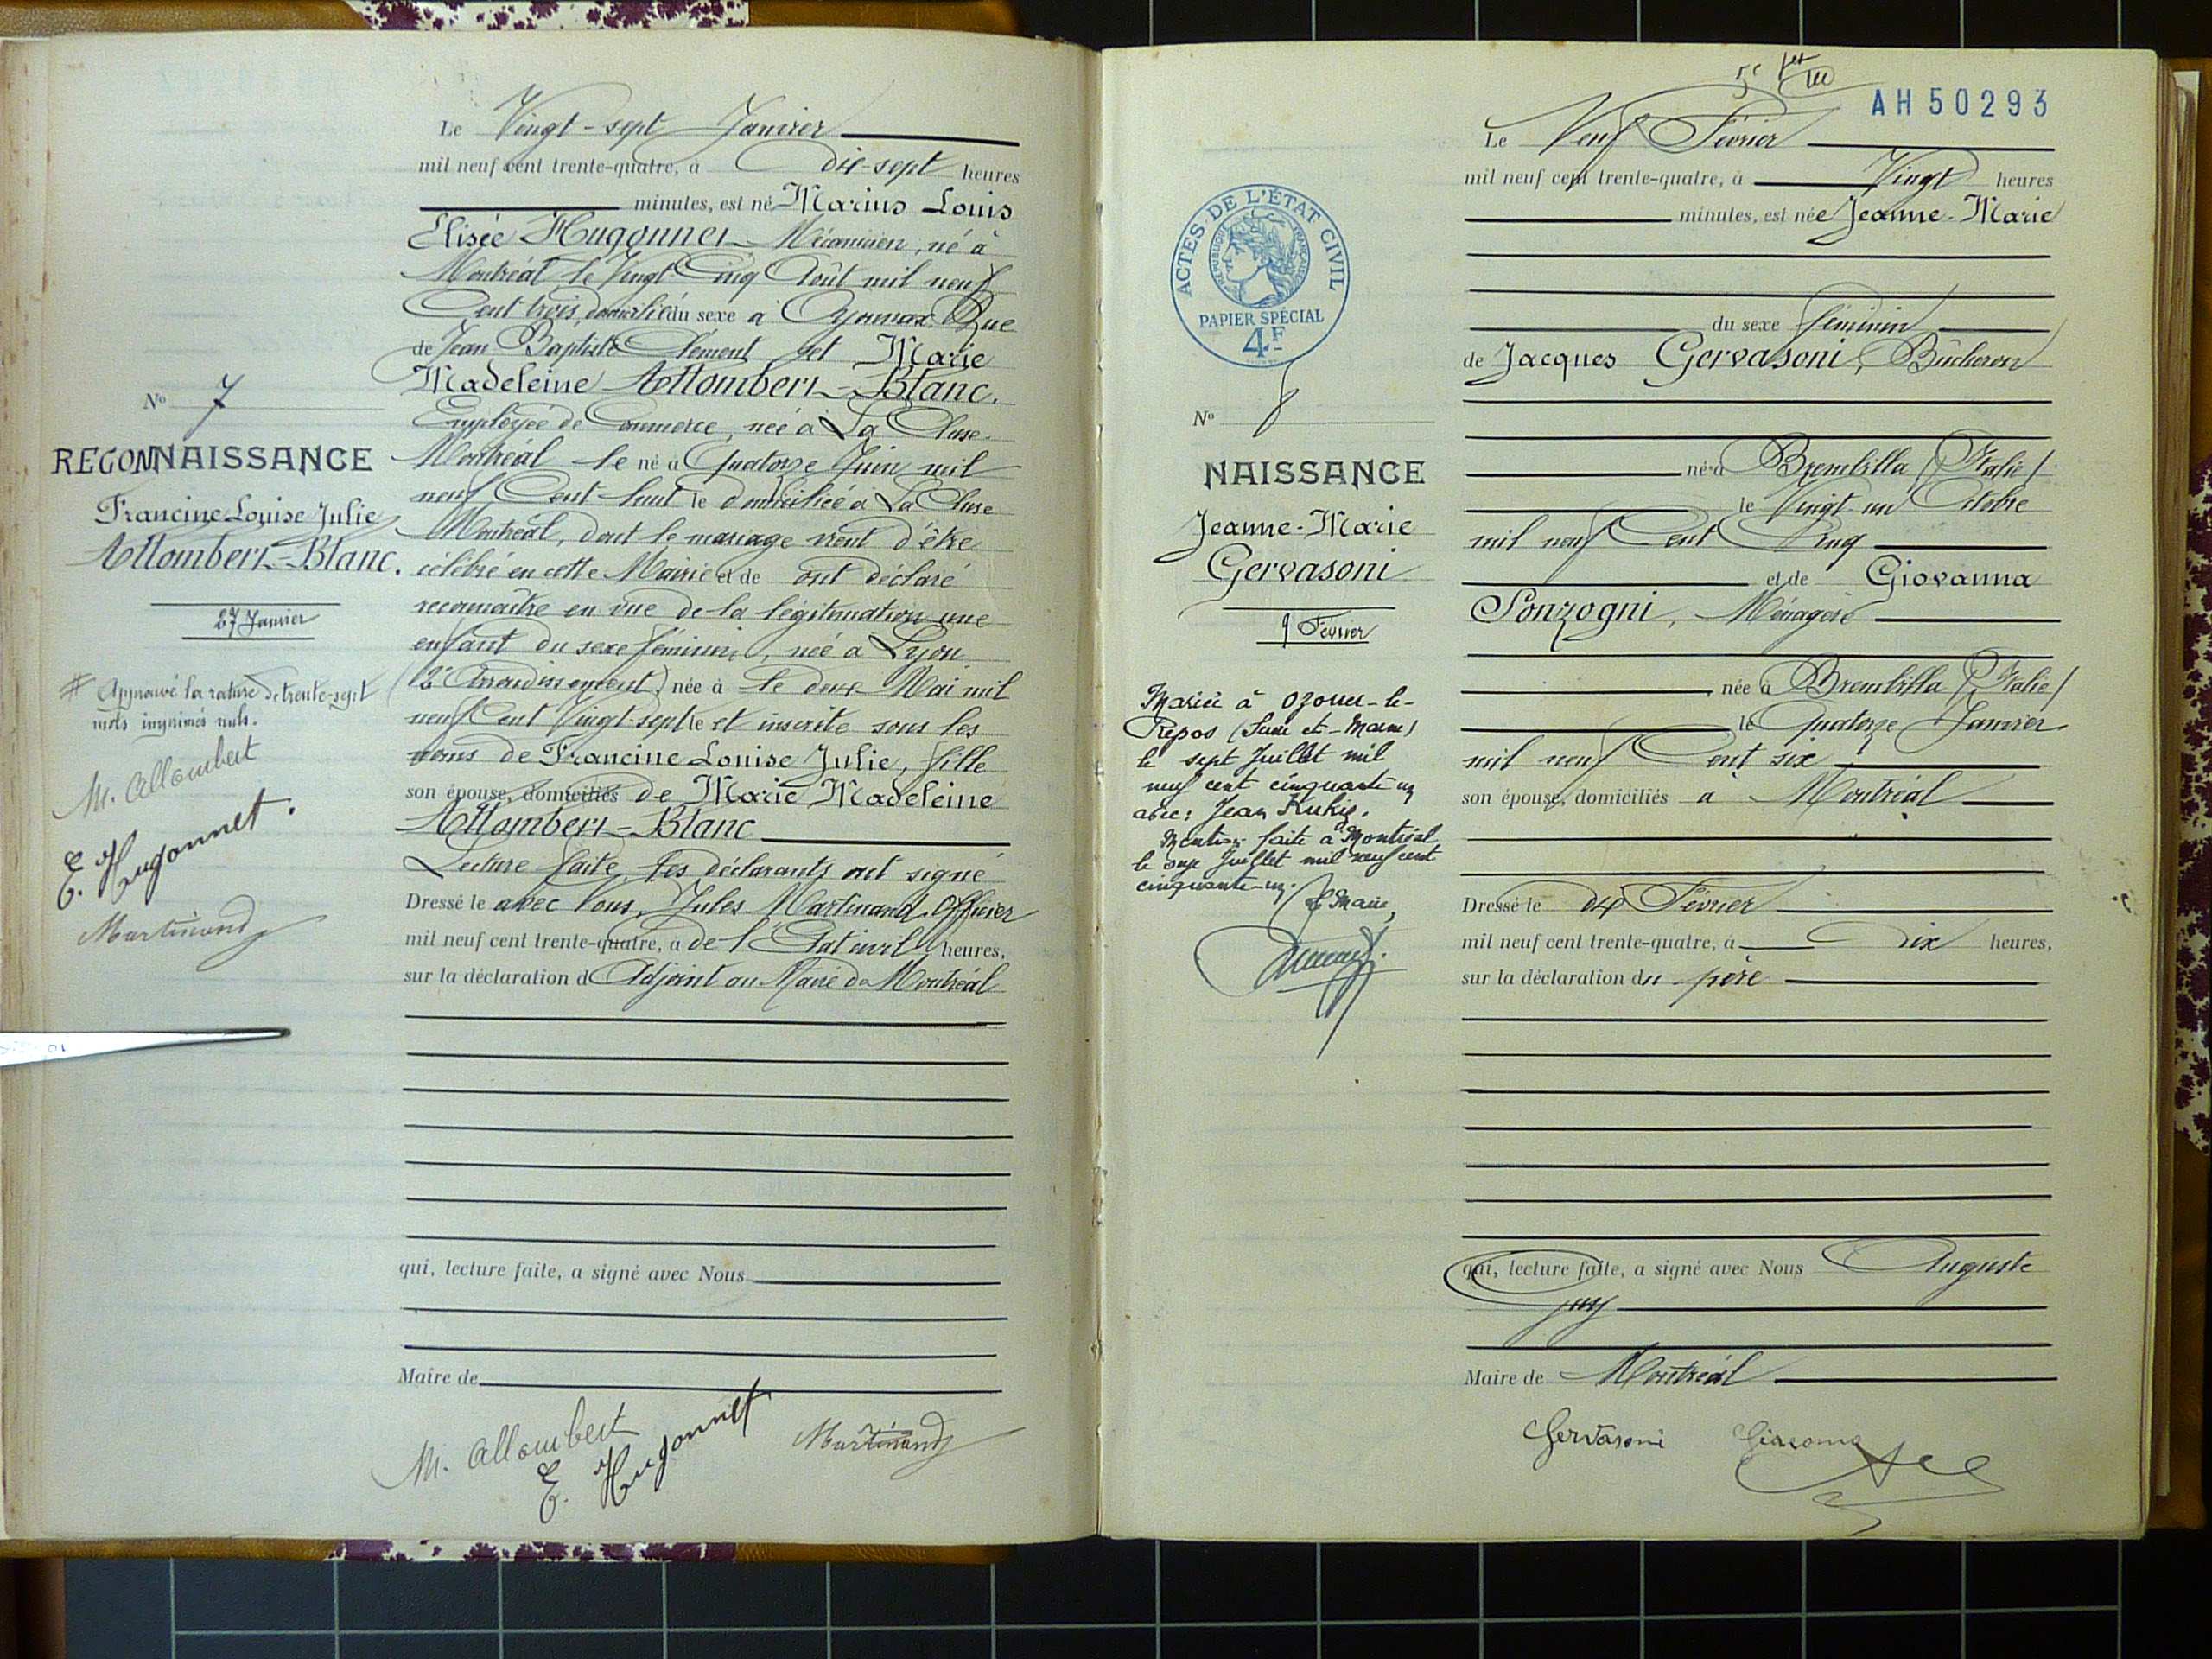 Le Vingt-sept Janvier
mil neuf cent trente-quatre, à dix-sept heures
minutes, est né Marius Louis
Elisée Hugonnet Mécanicien, né à
Montréal le Vingt Cinq Août mil neuf
Cent trois, domicilié du sexe à Oyonnax Rue
de Jean Baptiste Clément et Marie
Madeleine Allombert-Blanc.
Employée de Commerce, née à La Cluse
Montréal le né à Quatorze Juin mil
neuf Cent huit le domiciliée à La Cluse
Montréal, dont le mariage vient d'être
célébré en cette Mairie et de ont déclaré
reconnaître en vue de la légitimation une
enfant du sexe féminin, née à Lyon
(2e Arrondissement) née à le deux Mai mil
neuf Cent Vingt-sept le et inscrite sous les
noms de Francine Louise Julie, fille
son épouse, domiciliés de Marie Madeleine
Allombert-Blanc
Lecture faite, les déclarants ont signé
Dressé le avec Nous, Jules Martinand, Officier
mil neuf cent trente-quatre, à de l'Etat civil, heures,
sur la déclaration d Adjoint au Maire de Montréal
qui, lecture faite, a signé avec Nous
Maire de
M. Allombert
E. Hugonnet
Martinand
No 7
RECONNAISSANCE
Francine Louise Julie
Allombert-Blanc.
27 Janvier
# Approuvé la rature de trente-sept
mots imprimés nuls.
M. Allombert
E. Hugonnet.
Martinand
AH 50293
Le Neuf Février
mil neuf cent trente-quatre, à Vingt heures
minutes, est née Jeanne-Marie
du sexe féminin
de Jacques Gervasoni, Bûcheron
né à Brembilla (Italie)
le Vingt un Octobre
mil neuf Cent Cinq
et de Giovanna
Sonzogni, Ménagère
née à Brembilla (Italie)
le Quatorze Janvier
mil neuf Cent six
son épouse, domiciliés à Montréal
Dressé le dix Février
mil neuf cent trente-quatre, à Dix heures,
sur la déclaration du père
qui, lecture faite, a signé avec Nous Auguste
Maire de Montréal
Gervasoni Giacomo
ACTES DE L'ÉTAT CIVIL
RÉPUBLIQUE FRANÇAISE
PAPIER SPÉCIAL
4F
No 8
NAISSANCE
Jeanne-Marie
Gervasoni
9 Février
Mariée à Ozouer-le-
Repos (Seine-et-Marne)
le sept Juillet mil
neuf cent cinquante un
avec: Jean
Mention faite à Montréal
le onze Juillet mil neuf cent
cinquante-un.
Le Maire,